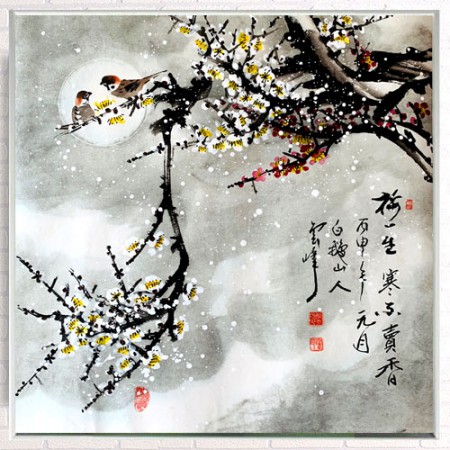 梅一生寒不賣香
丙申年元月
白山人
雲峰